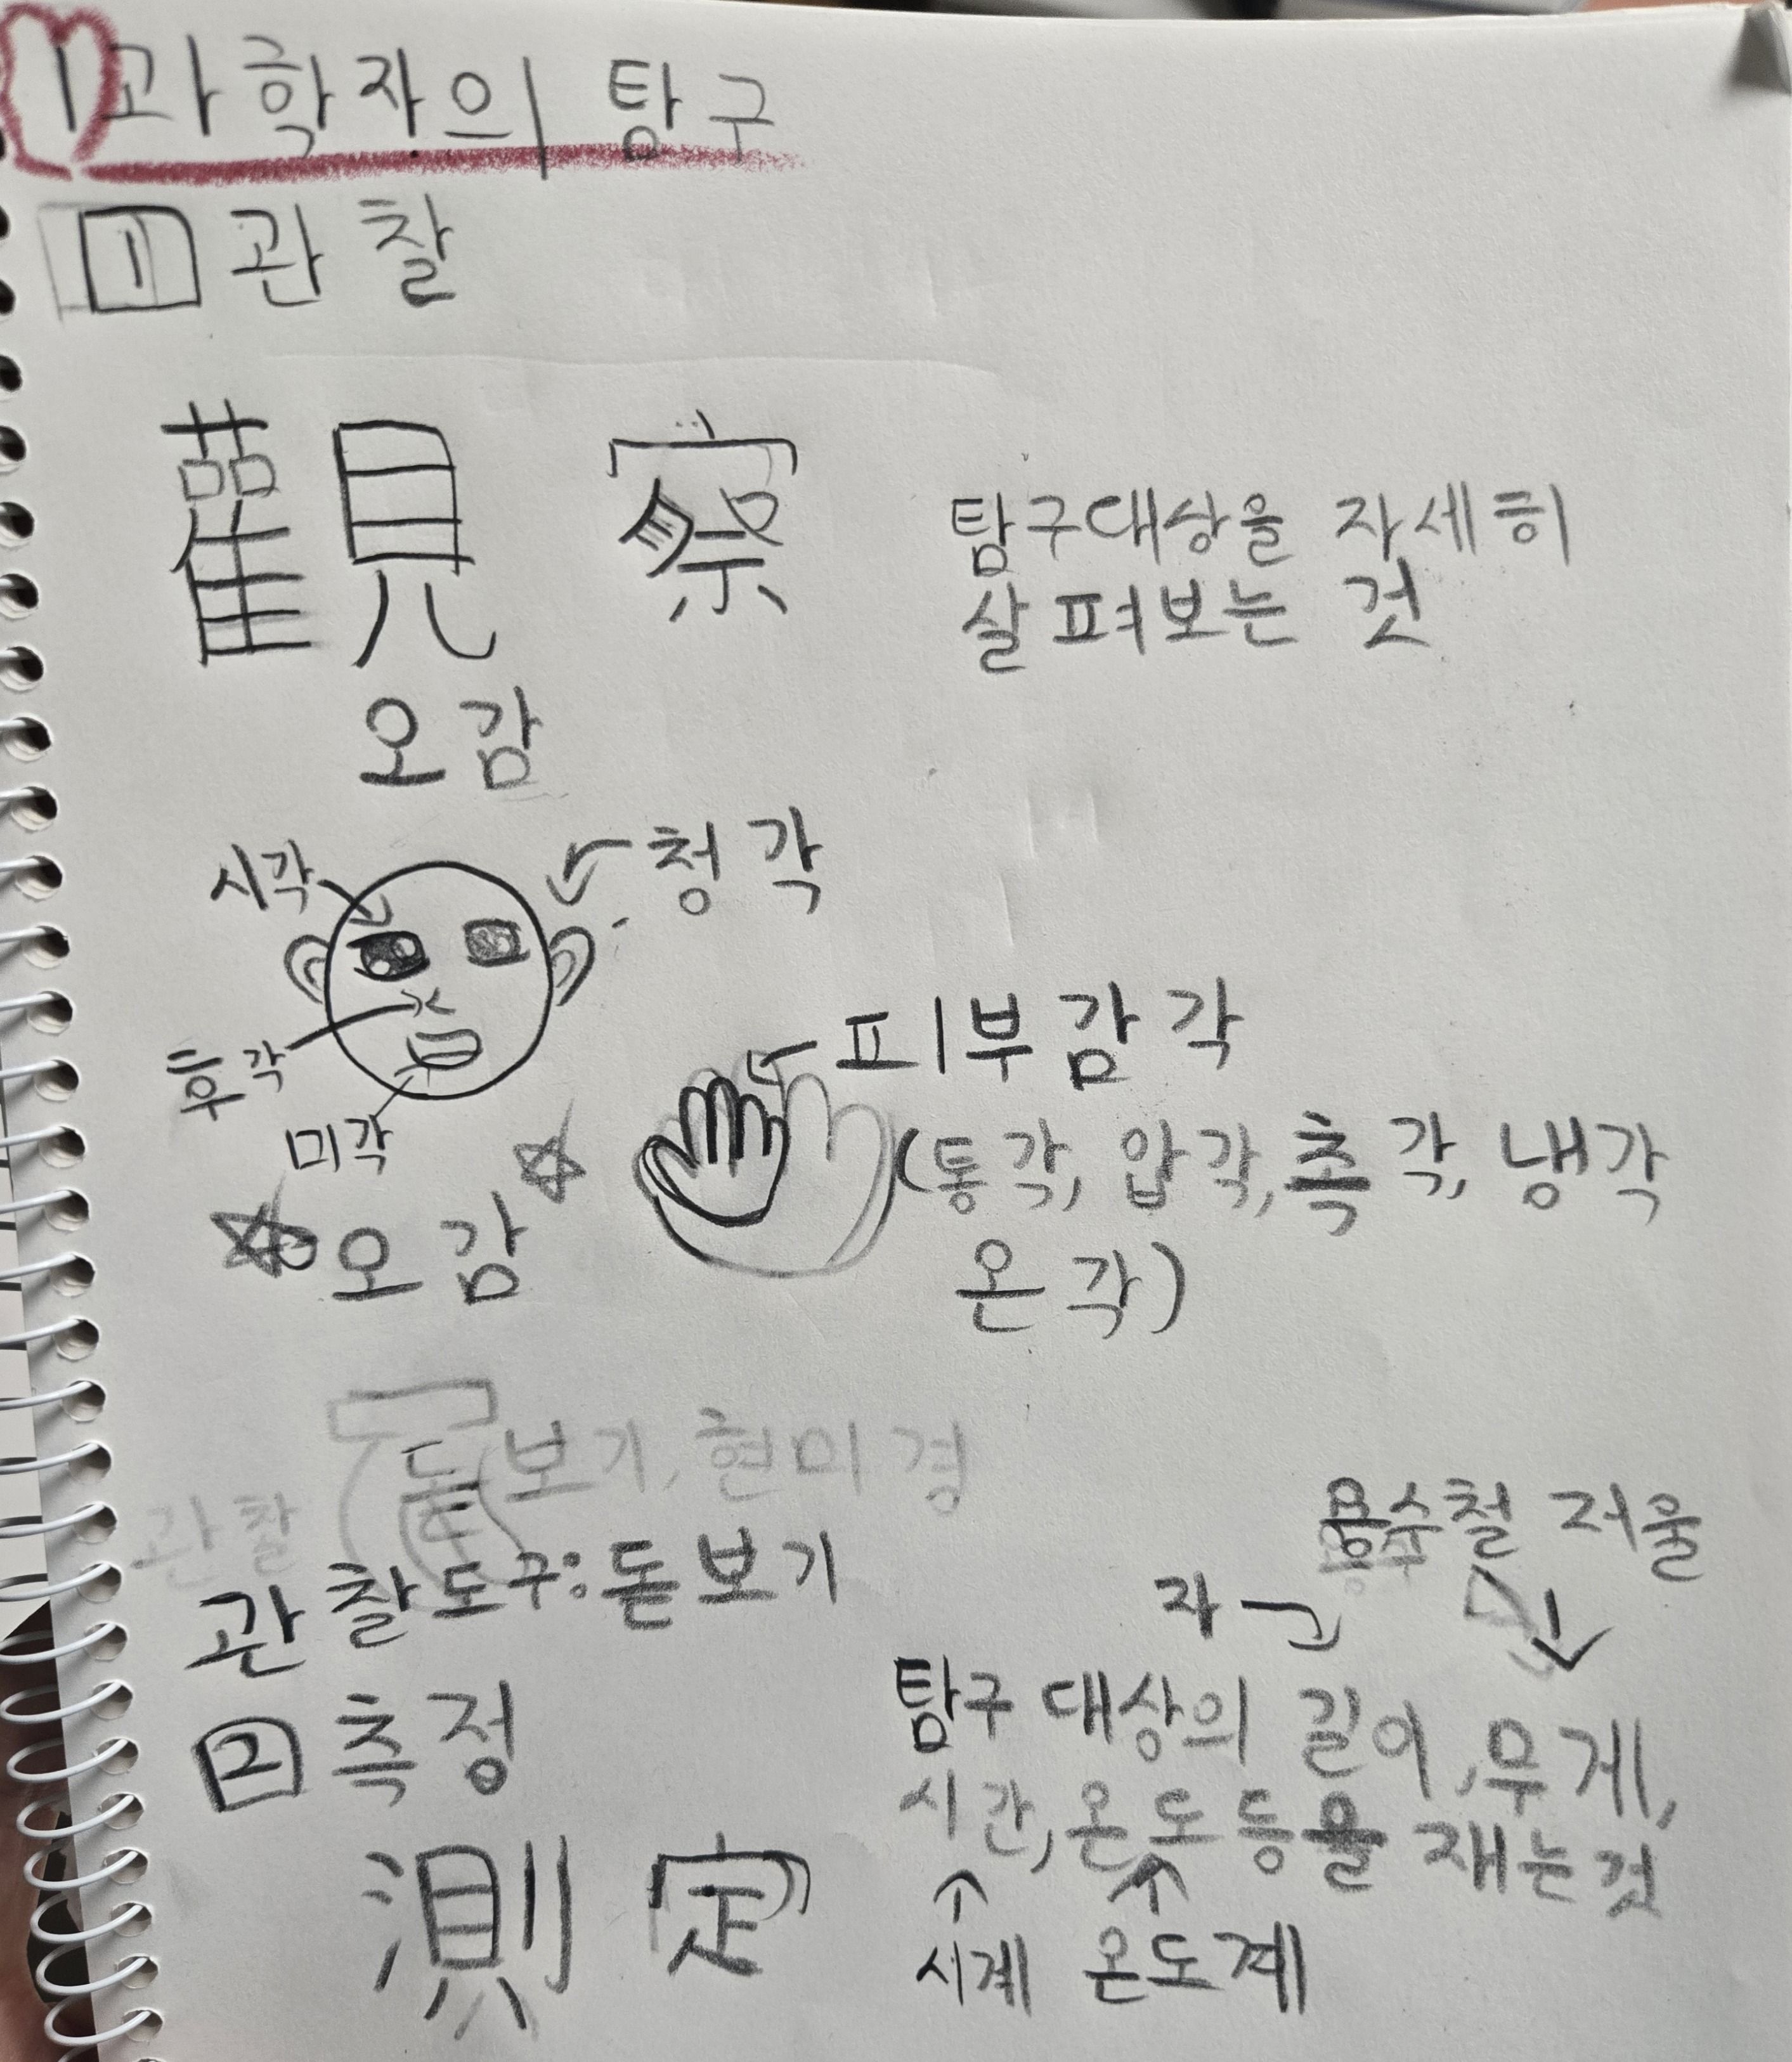 1 과학자의 탐구
1 관찰
觀 察
탐구대상을 자세히
살펴보는 것
오감
시각
청각
후각
미각
피부감각
(통각, 압각, 촉각, 냉각
온각)
오감
돋보기, 현미경
관찰
관찰도구: 돋보기
용수철 저울
자
2 측정
탐구 대상의 길이, 무게,
시간, 온도 등을 재는것
測 定
시계 온도계